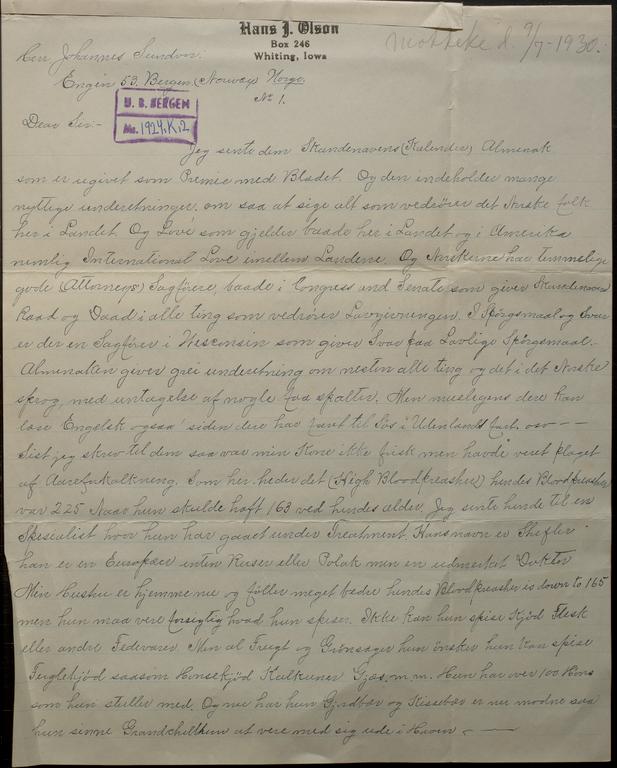 Hans J. Olson
Box 246
Whiting, Iowa
Mottekèd. 9/7-1930.
Herr Johannes Sundvor.
Engin 53. Bergen (Norway) Norge.
No 1.
U. B. BERGEN
Ms. 1924.K.2
Dear Sir:-
Jeg sente dem Skandenavens (Kalender) Almenak
som er ugivet som Premie med Bladet. Og den indeholder mange
nyttige underetninger. om saa at sige alt som vedrører det Norske folk
her i Landet. Og Love som gjelder baade her i Landet og i Amerika
nemlig International Love imellem Landene. Og Norskerne har temmelige
gode (Attorneys) Sagførere, baade i Congress and Senate som giver Skandenaven
Raad og Daad i alle ting som vedrører Lovgivningen. I Spörgsmaal og Svar
er der en Sagfører i Wesconsin som giver Svar paa Lovlige Spörgsmaal.
Almenaken giver grei underetning om nesten alle ting og det i det Norske
sprog, med untagelse af nogle faa spalter. Men mueligens dere kan
läse Engelsk ogsaa siden dere har faret til Sös i Udenlands fart. osv - - -
Sist jeg skrev til dem saa var min Kone ikke frisk men havde veret plaget
af Aareforkalkning. Som her heder det (High Bloodpreasher) hendes Bloodpreasher
var 225 Naar hun skulde haft 163 ved hendes alder. Jeg sente hende til en
Spesialist hvor hun har gaaet under Treatment. Hans navn er Shifler
han er en Europæer enten Russer eller Polak men en udmerket Doktor
Min Hustru er hjemme nu og föller meget bedre hendes Bloodpreasher is down to 165
men hun maa vere forsigtig hvad hun spiser. Ikke kan hun spise Kjöd Flesk
eller andre Fedevarer. Men al Frugt og Grönsager hun önsker hun kan spise
Fuglekjöd saasom Hönsekjöd Kalkuner Gjæs. m. m. Hun har over 100 Höns
som hun steller med. Og nu har hun Jordbær og Kissebær er nu modne saa
hun sinne Grandchildren at vere med sig ude i Haven - —